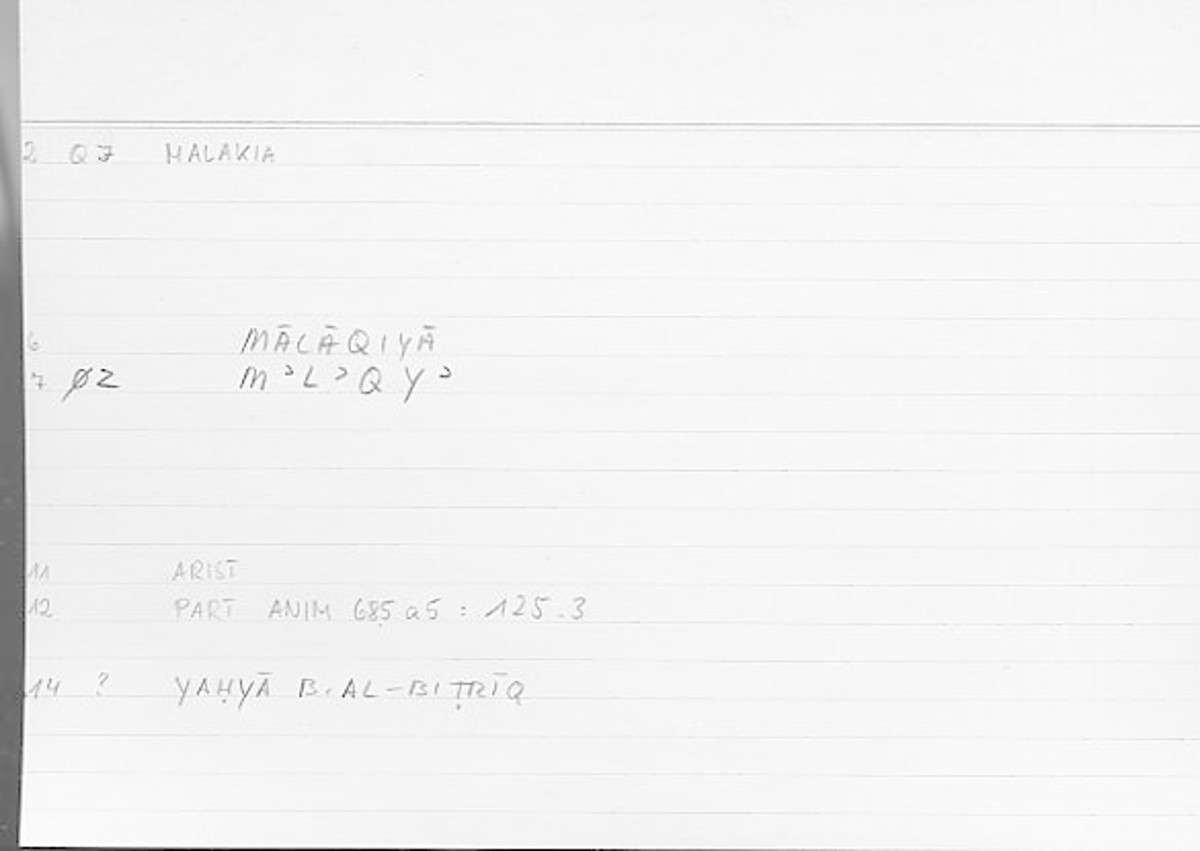 2 Q7 MALAKIA
6 MĀLĀQIYĀ
7 ØZ MʾLʾQYʾ
11 ARIST
12 PART ANIM 685 a5 : 125.3
14 ? YAḤYĀ B. AL-BIṬRĪQ